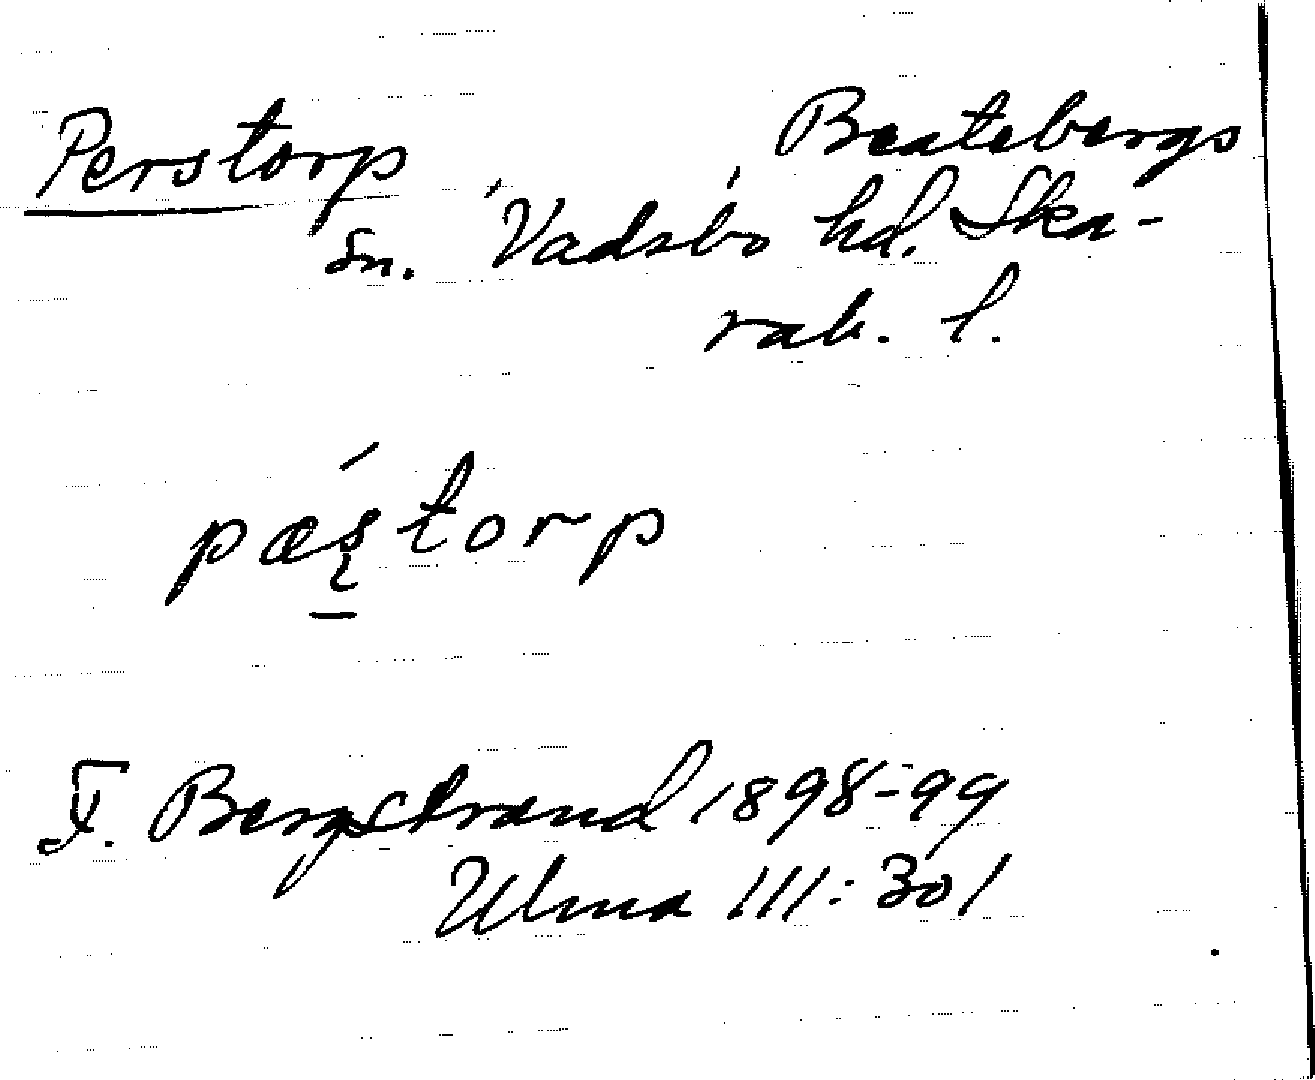 Perstorp Beatebergs
sn. Vadsbo hd. Ska-
rab. l.
pæʂ́torp
F. Bergstrand 1898-99
Ulma 111:301